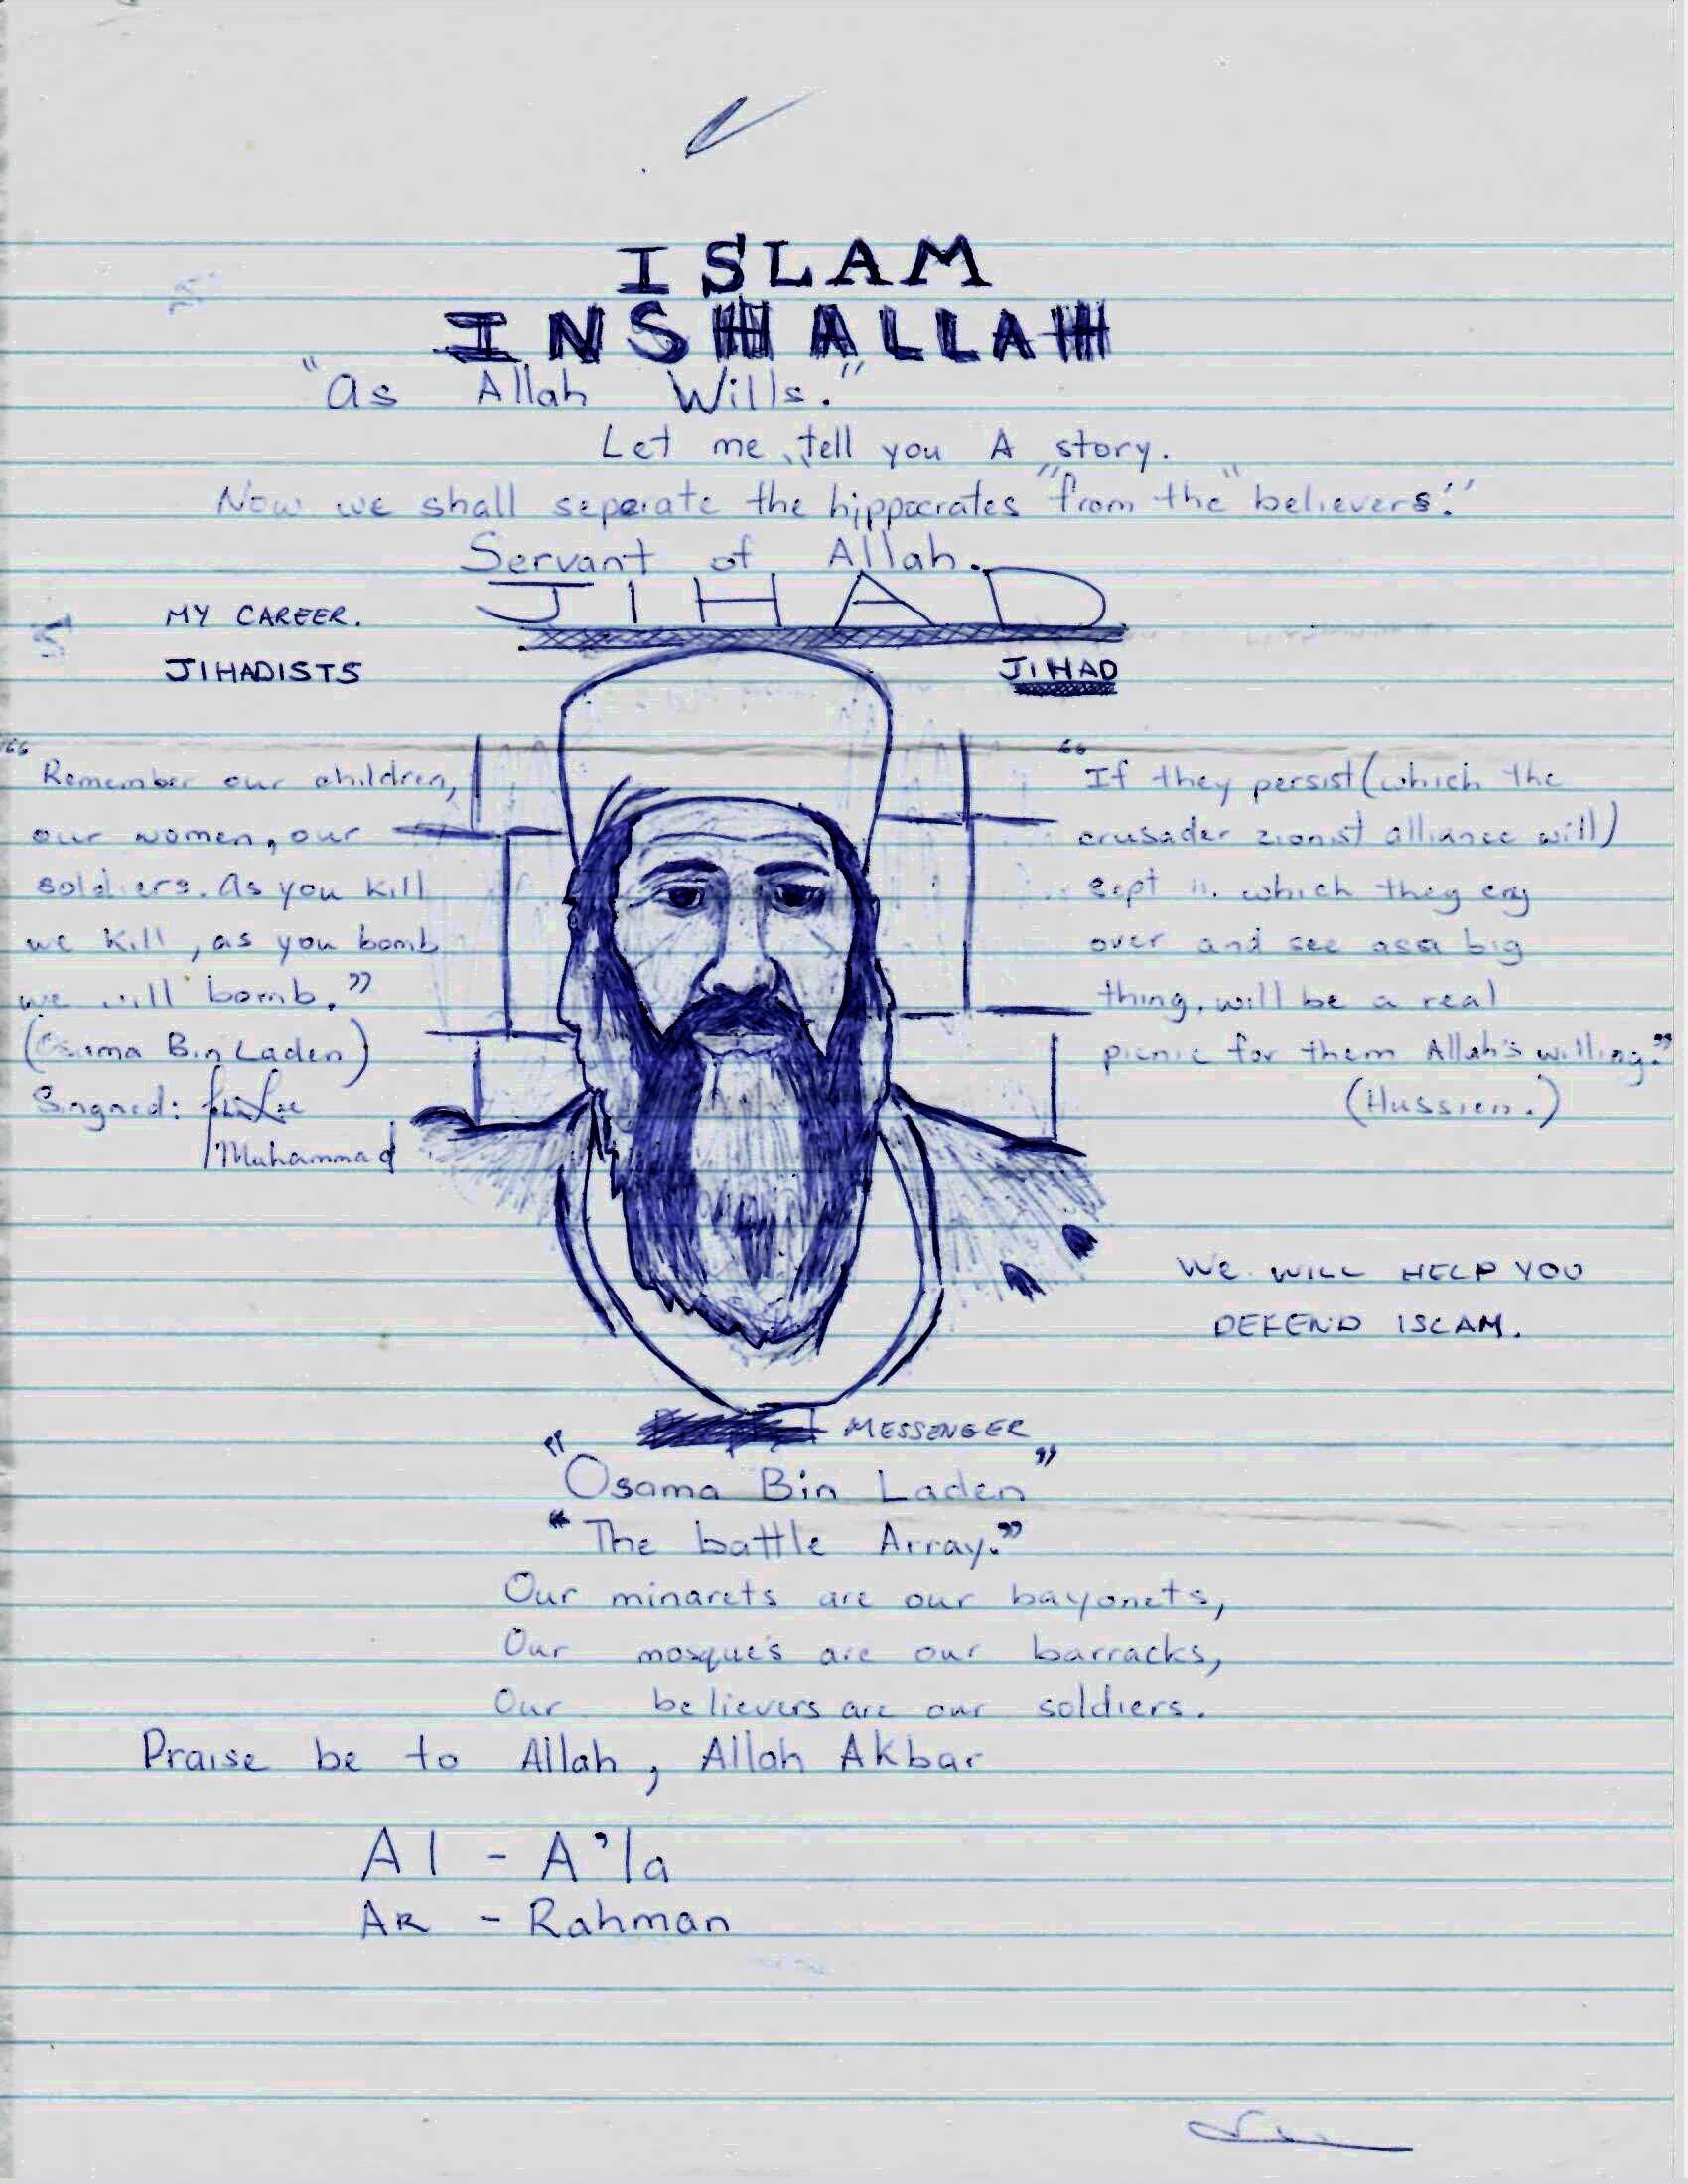 ISLAM
INSHALLAH
"As Allah Wills."
Let me, tell you A story.
Now we shall seperate the hippocrates "from the" believers!"
Servant of Allah.
JIHAD
MY CAREER.
JIHADISTS
JIHAD
"Remember our children,
our women, our
soldiers. As you kill
we kill, as you bomb
we will bomb."
(Osama Bin Laden)
Singned:
Muhammad
"If they persist (which the
crusader zionist alliance will)
sept 11. which they cry
over and see as a big
thing. will be a real
picnic for them Allah's willing."
(Hussien.)
WE WILL HELP YOU
DEFEND ISLAM.
MESSENGER
"Osama Bin Laden"
"The battle Array."
Our minarets are our bayonets,
Our mosque's are our barracks,
Our believers are our soldiers.
Praise be to Allah, Allah Akbar
Al - A'la
AR - Rahman